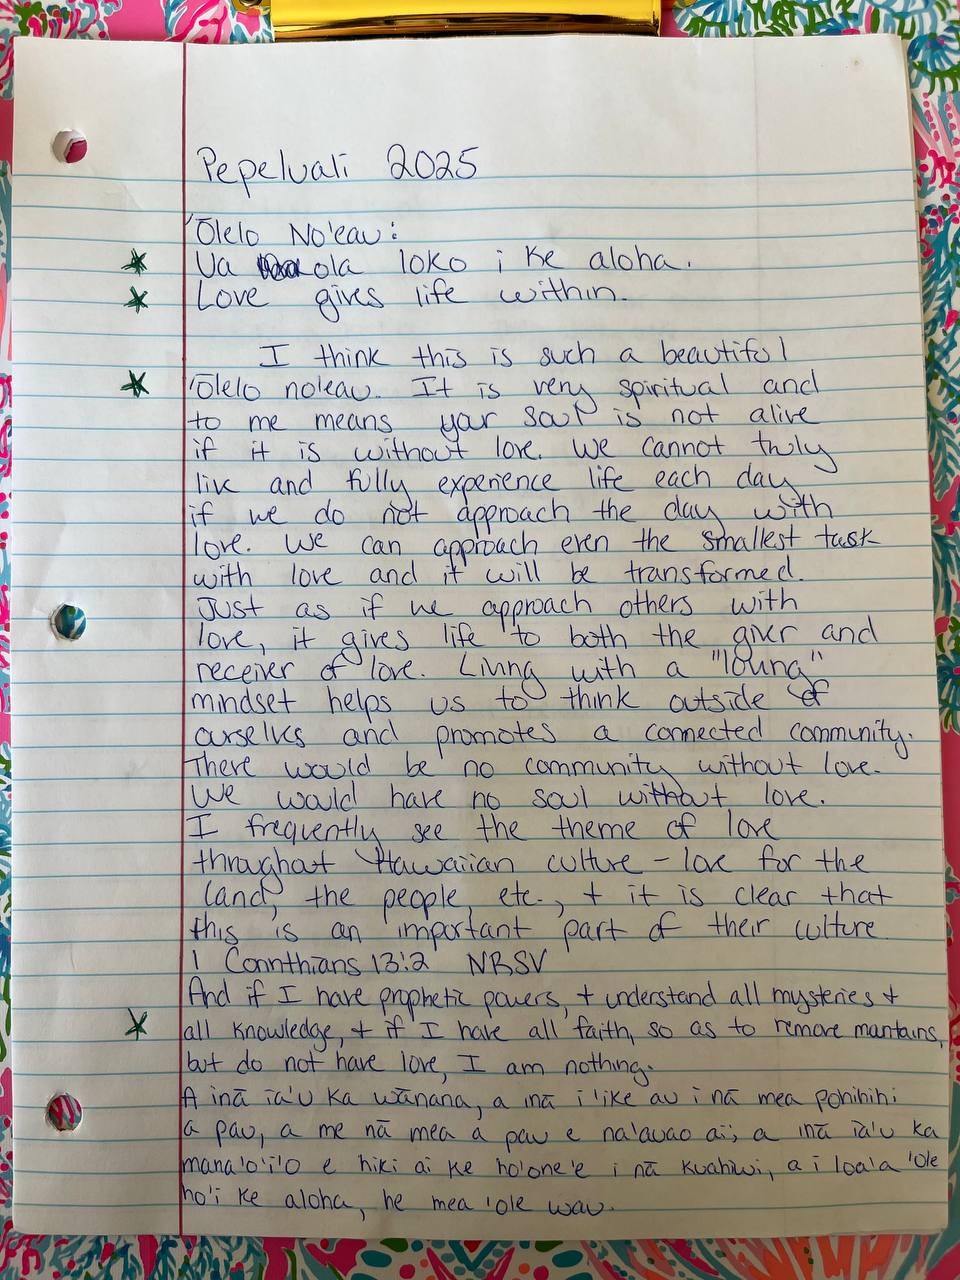 Pepeluali 2025
'Ōlelo No'eau:
Ua ola loko i ke aloha.
Love gives life within.
I think this is such a beautiful
'Ōlelo no'eau. It is very spiritual and
to me means your soul is not alive
if it is without love. We cannot truly
live and fully experience life each day
if we do not approach the day with
love. We can approach even the smallest task
with love and it will be transformed.
Just as if we approach others with
love, it gives life to both the giver and
receiver of love. Living with a "loving"
mindset helps us to think outside of
ourselves and promotes a connected community.
There would be no community without love.
We would have no soul without love.
I frequently see the theme of love
throughout Hawaiian culture - love for the
land, the people, etc., + it is clear that
this is an important part of their culture.
1 Corinthians 13:2 NRSV
And if I have prophetic powers, + understand all mysteries +
all knowledge, + if I have all faith, so as to remove mountains,
but do not have love, I am nothing.
A inā ia'u ka wānana, a inā i 'ike au i nā mea pohihihi
a pau, a me nā mea a pau e na'auao ai; a inā ia'u ka
mana'o'i'o e hiki ai ke ho'one'e i nā kuahiwi, a i loa'a 'ole
ho'i ke aloha, he mea 'ole wau.